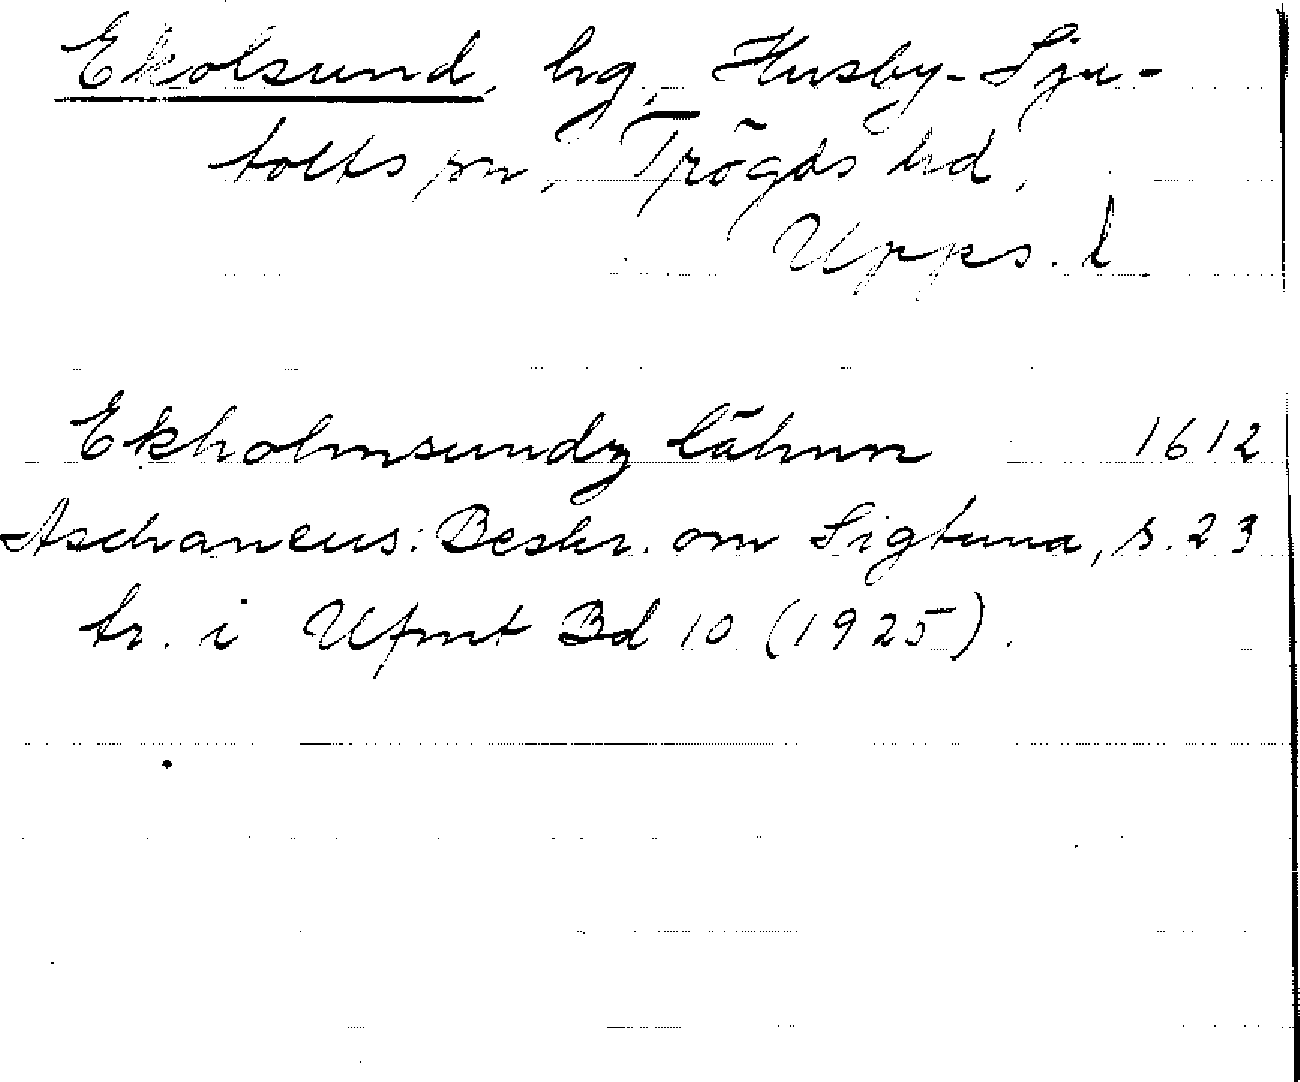 Ekolsund, hg, Husby-Sju-
tolfts sn, Trögds hd,
Upps. l
Ekholmsundz lähnn 1612
Aschaneus: Beskr. om Sigtuna, s. 23
tr. i Ufmt Bd 10 (1925).